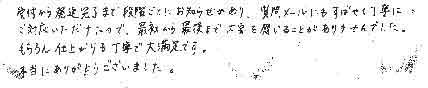 受付から発送完了まで段階ごとにお知らせがあり、質問メールにもすばやく丁寧に
ご対応いただけたので、最初から最後まで不安を感じることがありませんでした。
もちろん仕上がりも丁寧で大満足です。
本当にありがとうございました。